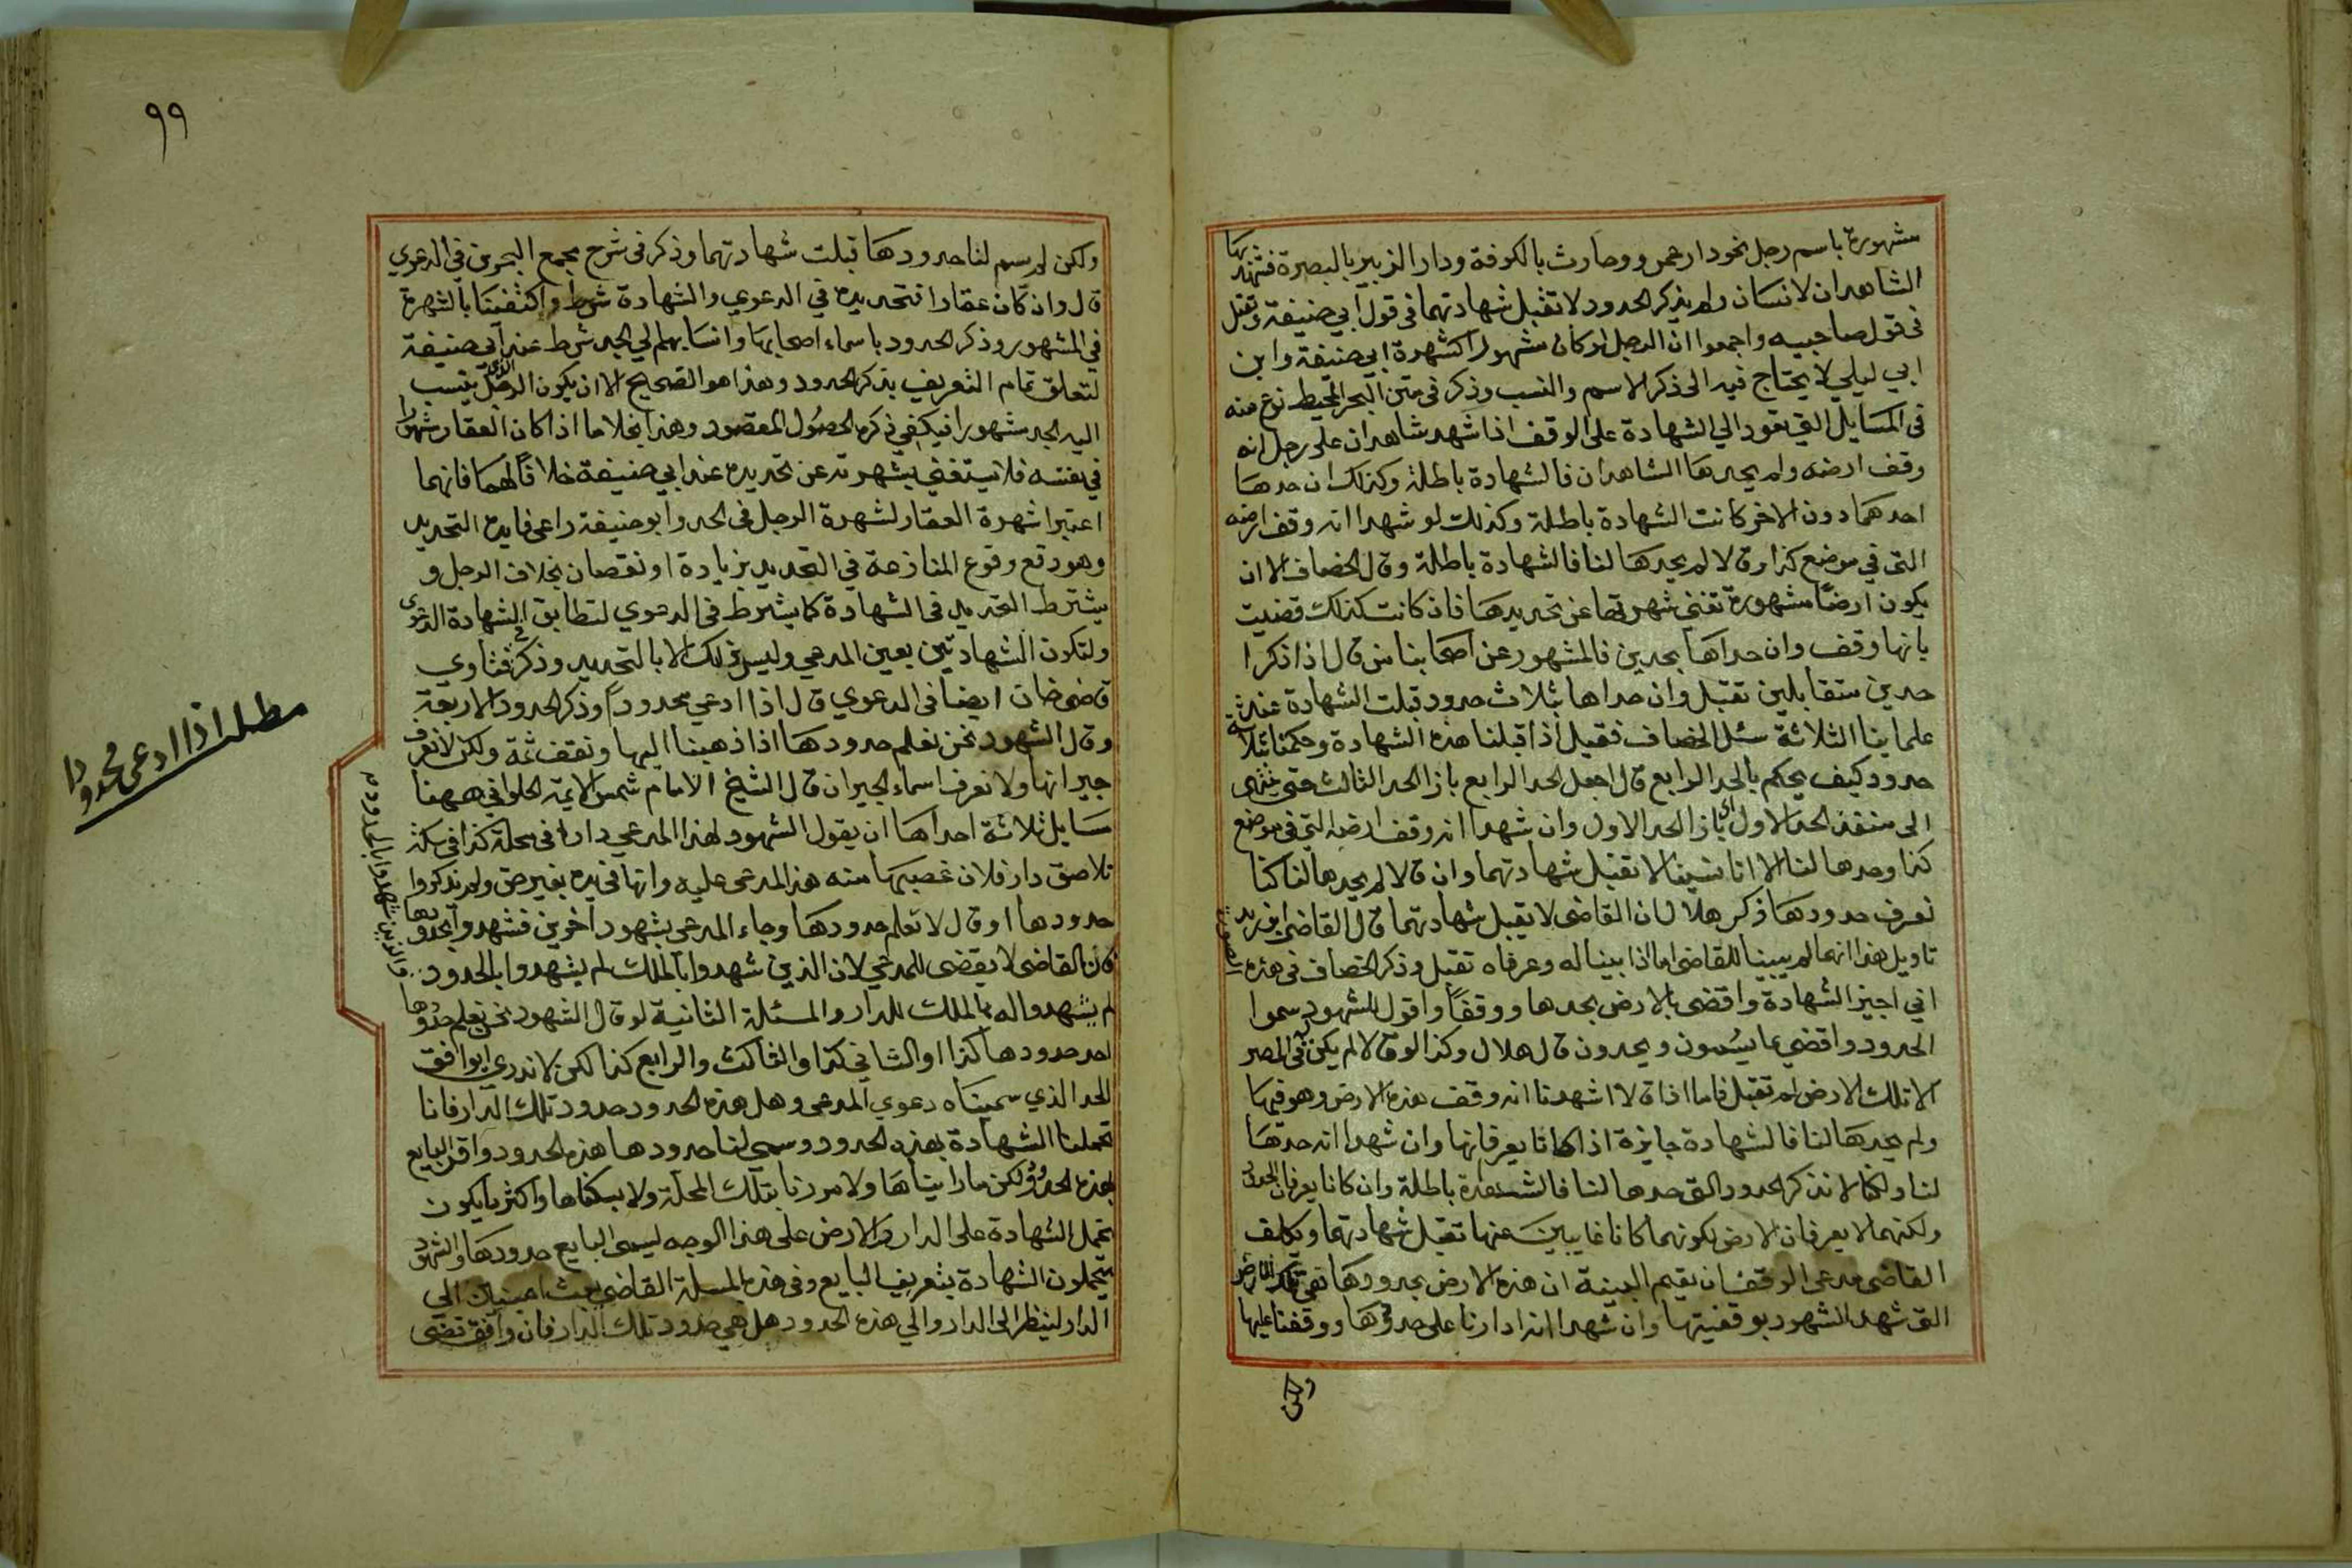 مشهورة باسم رجل نحو دار عمرو وحارث بالكوفة ودار الزبير بالبصرة فشهد بها
الشاهدان لانسان ولم يذكر الحدود لا تقبل شهادتهما في قول ابي حنيفة وتقبل
في قول صاحبيه واجمعوا ان الرجل لو كان مشهورا كشهرة ابي حنيفة وابن
ابي ليلي لا يحتاج فيه الى ذكر الاسم والنسب وذكر في متن البحر المحيط نوع منه
في المسايل التي تعود الي الشهادة على الوقف اذا شهد شاهدان على رجل انه
وقف ارضه ولم يحدها الشاهدان فالشهادة باطلة وكذلك ان حدها
احدهما دون الاخر كانت الشهادة باطلة وكذلك لو شهدا انه وقف ارضه
التى في موضع كذا وقالا لم يحدها لنا فالشهادة باطلة وقال الخصاف الا ان
يكون ارضا مشهورة تغني شهرتها عن تحديدها فاذ كانت كذلك قضيت
بانها وقف وان حداها بحدين فالمشهور عن اصحابنا من قال اذا ذكرا
حدين متقابلين تقبل وان حداها بثلاث حدود قبلت الشهادة عند
علماينا الثلاثة سئل الخصاف فقيل اذا قبلنا هذه الشهادة وحكمنا بثلاثة
حدود كيف يحكم بالحد الرابع قال اجعل الحد الرابع بازا الحد الثالث حتى ينتهى
الى منفذ الحد الاول اي بازا الحد الاول وان شهدا انه وقف ارضه التى في موضع
كذا وحدها لنا الا انا نسينا لا تقبل شهادتهما وان قالا لم يحدها لنا كنا
نعرف حدودها ذكر هلال ان القاضى لا يقبل شهادتهما قال القاضى ابو زيد
تاويل هذا انهما لم يبينا للقاضى اما اذا بينا له وعرفاه تقبل وذكر الخصاف في هذه الصورة
اني اجيز الشهادة واقضى بالارض بحدها ووقفا واقول للشهود سموا
الحدود واقضي بما يسمون ويحدون قال هلال وكذا لو قالا لم يكن له في المصر
الا تلك الارض لم تقبل فاما اذا قالا اشهدنا انه وقف هذه الارض وهو فيها
ولم يحدها لنا فالشهادة جايزة اذا كانا يعرفانها وان شهدا انه حدها
لنا ولكنا لا نذكر الحدود التى حدها لنا فالشهادة باطلة وان كانا يعرفان الحدود
ولكنهما لا يعرفان الارض لكونهما كانا غايبين عنها تقبل شهادتهما ويكلف
القاضى مدعى الوقف ان يقيم البينة ان هذه الارض بحدودها هي تلك الارض
التى شهد الشهود بوقفيتها وان شهدا انه ادارنا على حدودها ووقفنا عليها
ولكن
٩٩
ولكن لم يسم لنا حدودها قبلت شهادتهما وذكر في شرح مجمع البحرين في الدعوي
قال وان كان عقارا فتحديده في الدعوي والشهادة شرط واكتفينا بالشهرة
في المشهور وذكر الحدود باسماء اصحابها وانسابهم الي الجد شرط عند ابي حنيفة
لتعلق تمام التعريف بذكر الحدود وهذا هو الصحيح الا ان يكون الرجل الذي ينسب
اليه الجد مشهورا فيكفي ذكره لحصول المقصود وهذا بخلاف ما اذا كان العقار مشهورا
في نفسه فلا يستغني بشهرته عن تحديده عند ابي حنيفة خلافا لهما فانهما
اعتبرا شهرة العقار لشهرة الرجل في الحد وابو حنيفة راعى فايدة التحديد
وهو دفع وقوع المنازعة في التحديد بزيادة او نقصان بخلاف الرجل و
يشترط التحديد في الشهادة كما يشترط في الدعوي لتطابق الشهادة الدعوى
ولتكون الشهادتين بعين المدعي وليس ذلك الا بالتحديد وذكر في فتاوي
قاضى خان ايضا في الدعوي قال اذا ادعي محدودا وذكر الحدود الاربعة
وقال الشهود نحن نعلم حدودها اذا ذهبنا اليها ونقف ثمة ولكن لا نعرف
جيرانها ولا نعرف اسماء الجيران قال الشيخ الامام شمس الايمة الحلواني ههنا
مسايل ثلاثة احداها ان يقول الشهود لهذا المدعي دارا في محلة كذا في سكة
تلاصق دار فلان غصبها منه هذا المدعى عليه وانها في يده بغير حق ولم يذكروا
حدودها او قال لا نعلم حدودها وجاء المدعى بشهود اخرين فشهدوا بحدودها
فان القاضى لا يقضى للمدعي لان الذين شهدوا بالملك لم يشهدوا بالحدود
والذين شهدوا بالحدود م
لم يشهدوا له بالملك للدار والمسئلة الثانية لو قال الشهود نحن نعلم حدودها
احد حدودها كذا او الثاني كذا والثالث والرابع كذا لكن لا ندري ايوافق
الحد الذي سميناه دعوي المدعى وهل هذه الحدود حدود تلك الدار فانا
تحملنا الشهادة بهذه الحدود وسمى لنا حدودها هذه الحدود واقر البايع
بهذه الحدود ولكن ما راينا ها ولا مررنا بتلك المحلة ولا بسكناها واكثر ما يكون
تحمل الشهادة على الدار والارض على هذا الوجه ليسمى البايع حدودها والشهود
يتحملون الشهادة بتعريف البايع وفي هذه المسلة القاضى يبعث امينين الي
الدار لينظر الى الدار والي هذه الحدود هل هي حدود تلك الدار فان وافق قضى
مطلب اذا ادعى محدودا